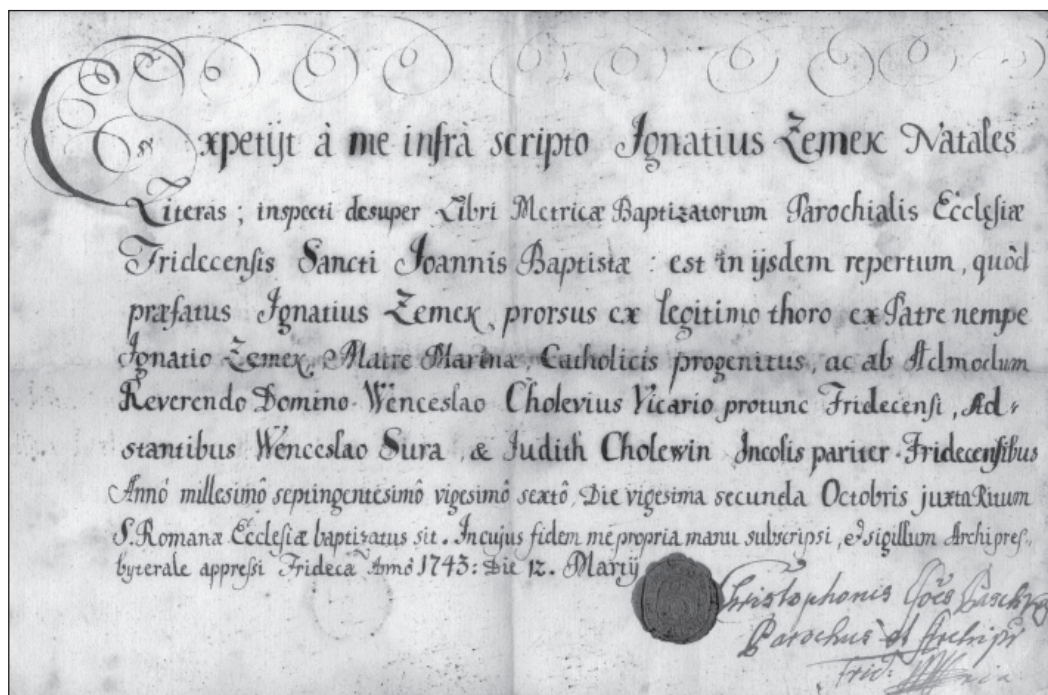 Expetijt à me infrà scripto Ignatius Zemek Natales
Literas ; inspecti desuper Libri Metricæ Baptizatorum Parochialis Ecclesiæ
Fridecensis Sancti Joannis Baptistæ : est in ijsdem repertum, quòd
præfatus Ignatius Zemek, prorsus ex legitimo thoro ex Patre nempe
Ignatio Zemek, Matre Marina, Catholicis progenitus, ac ab Admodum
Reverendo Domino Wenceslao Cholevius Vicario protunc Fridecensi, Ad-
stantibus Wenceslao Sura, & Judith Cholewin Incolis pariter Fridecensibus
Annô millesimô septingentesimô vigesimô sextô, Die vigesima secunda Octobris juxta Ritum
S. Romanæ Ecclesiæ baptizatus sit. In cujus fidem me propria manu subscripsi, & sigillum Archipres-
byterale appressi Fridecæ Annô 1743: Die 12. Martij
Christophorus
Parochus et Archipr
Frid: